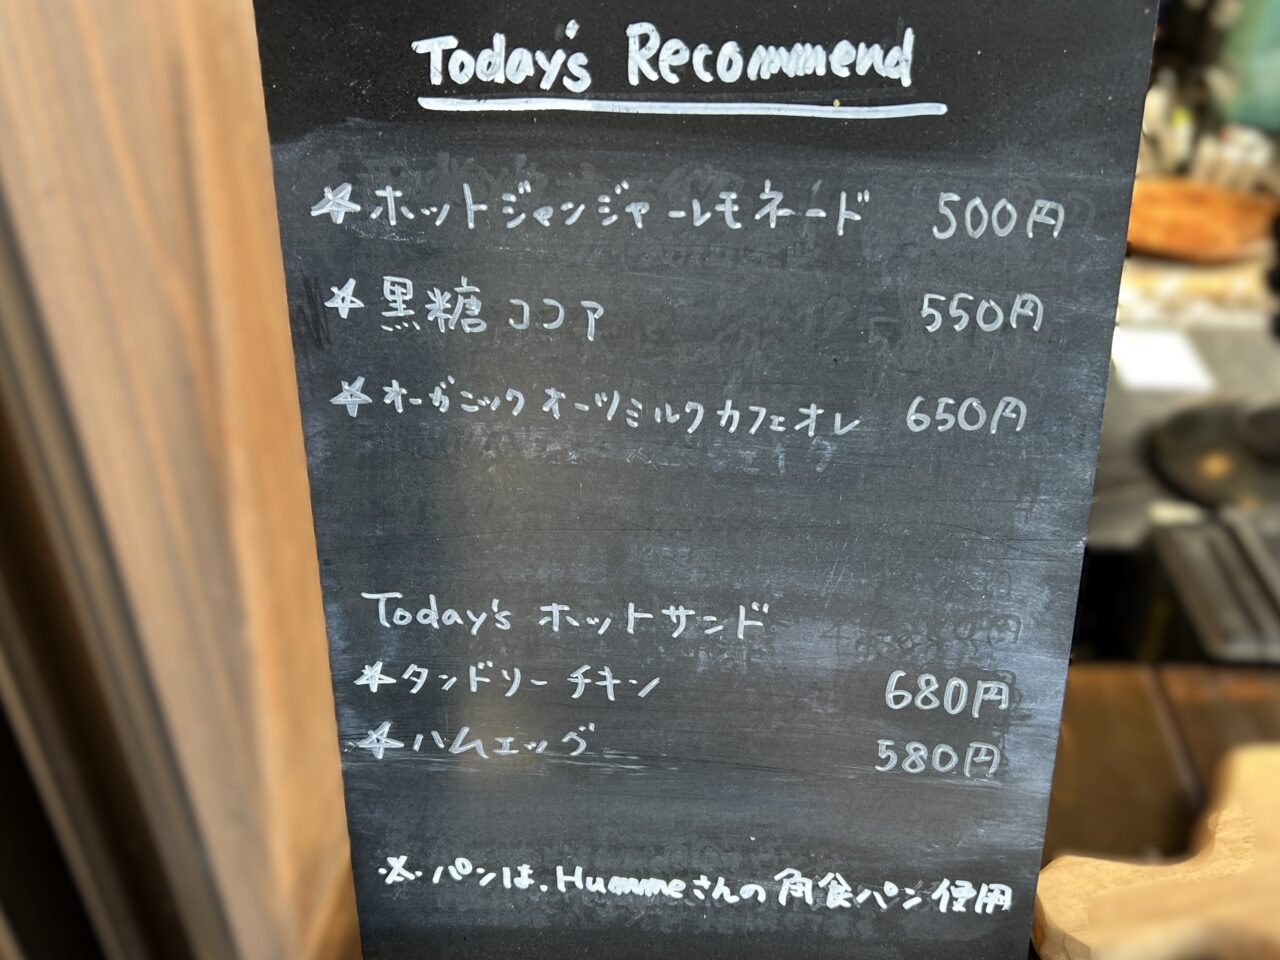 Today's Recommend
☆ホットジャンジャーレモネード 500円
☆黒糖ココア 550円
☆オーガニックオーツミルクカフェオレ 650円
Today's ホットサンド
☆タンドリーチキン 680円
☆ハムエッグ 580円
※パンは、Hummeさんの角食パン使用